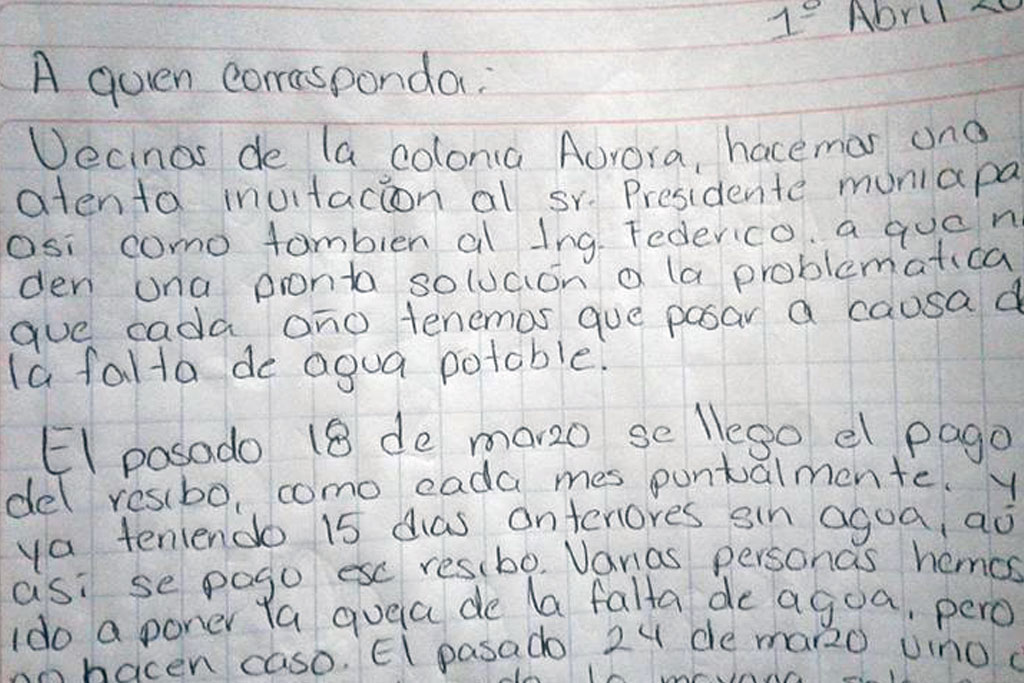 1º Abril
A quien corresponda:
Vecinos de la colonia Aurora, hacemos una
atenta invitación al sr. Presidente municipa
asi como tambien al Ing. Federico. a que n
den una pronta solución a la problematica
que cada año tenemos que pasar a causa d
la falta de agua potable.
El pasado 18 de marzo se llego el pago
del resibo, como cada mes puntualmente. y
ya teniendo 15 dias anteriores sin agua, aú
asi se pago ese resibo. Varias personas hemos
ido a poner la queja de la falta de agua, pero
no hacen caso. El pasado 24 de marzo vino